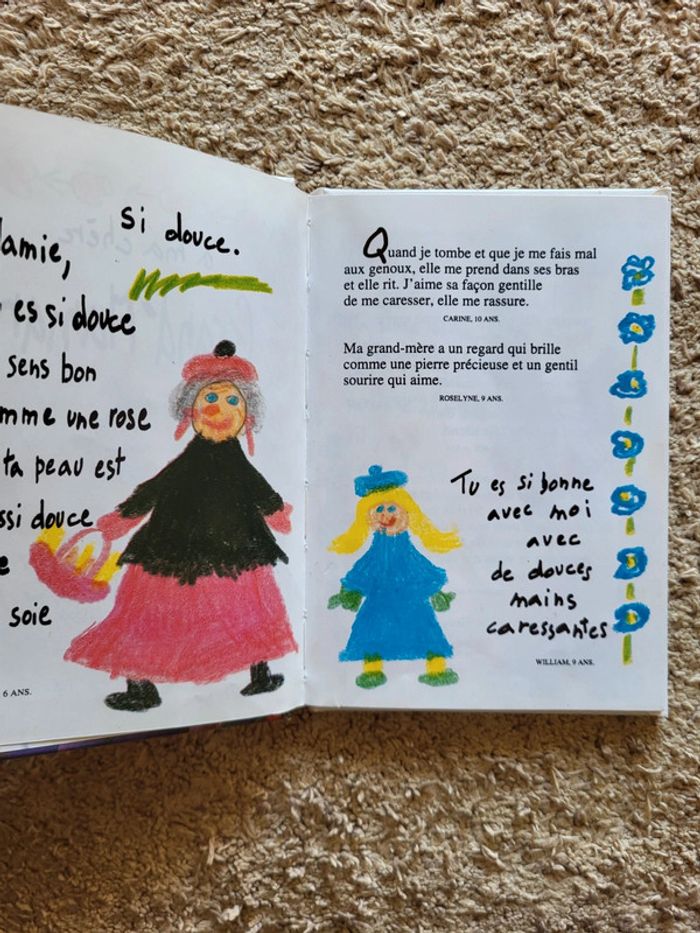 si douce.
amie,
es si douce
sens bon
mme une rose
ta peau est
ssi douce
e
soie
6 ANS.
Quand je tombe et que je me fais mal
aux genoux, elle me prend dans ses bras
et elle rit. J'aime sa façon gentille
de me caresser, elle me rassure.
CARINE, 10 ANS.
Ma grand-mère a un regard qui brille
comme une pierre précieuse et un gentil
sourire qui aime.
ROSELYNE, 9 ANS.
Tu es si bonne
avec moi
avec
de douces
mains
caressantes
WILLIAM, 9 ANS.